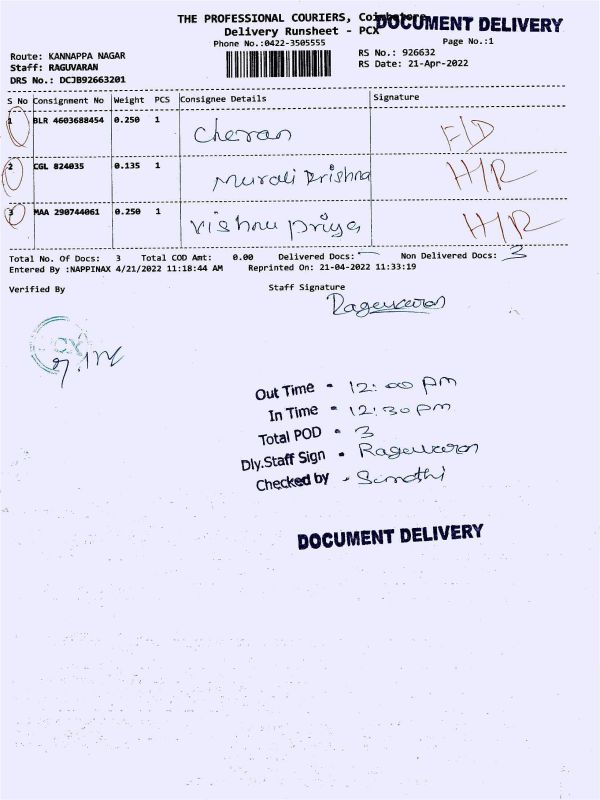 THE PROFESSIONAL COURIERS, Coimbatore
DOCUMENT DELIVERY
Delivery Runsheet - PCX
Phone No.:0422-3505555
Page No.:1
Route: KANNAPPA NAGAR
RS No.: 926632
Staff: RAGUVARAN
RS Date: 21-Apr-2022
DRS No.: DCJB92663201
S No Consignment No Weight PCS Consignee Details Signature
1 BLR 4603688454 0.250 1 Cheran F/D
2 CGL 824035 0.135 1 Murali Krishna H/R
3 MAA 290744061 0.250 1 Vishnu priya H/R
Total No. Of Docs: 3 Total COD Amt: 0.00 Delivered Docs: - Non Delivered Docs: 3
Entered By :NAPPINAX 4/21/2022 11:18:44 AM Reprinted On: 21-04-2022 11:33:19
Verified By Staff Signature
Raguvaran
Out Time - 12:00 pm
In Time - 12:30 pm
Total POD - 3
Dly.Staff Sign - Raguvaran
Checked by - Sumathi
DOCUMENT DELIVERY